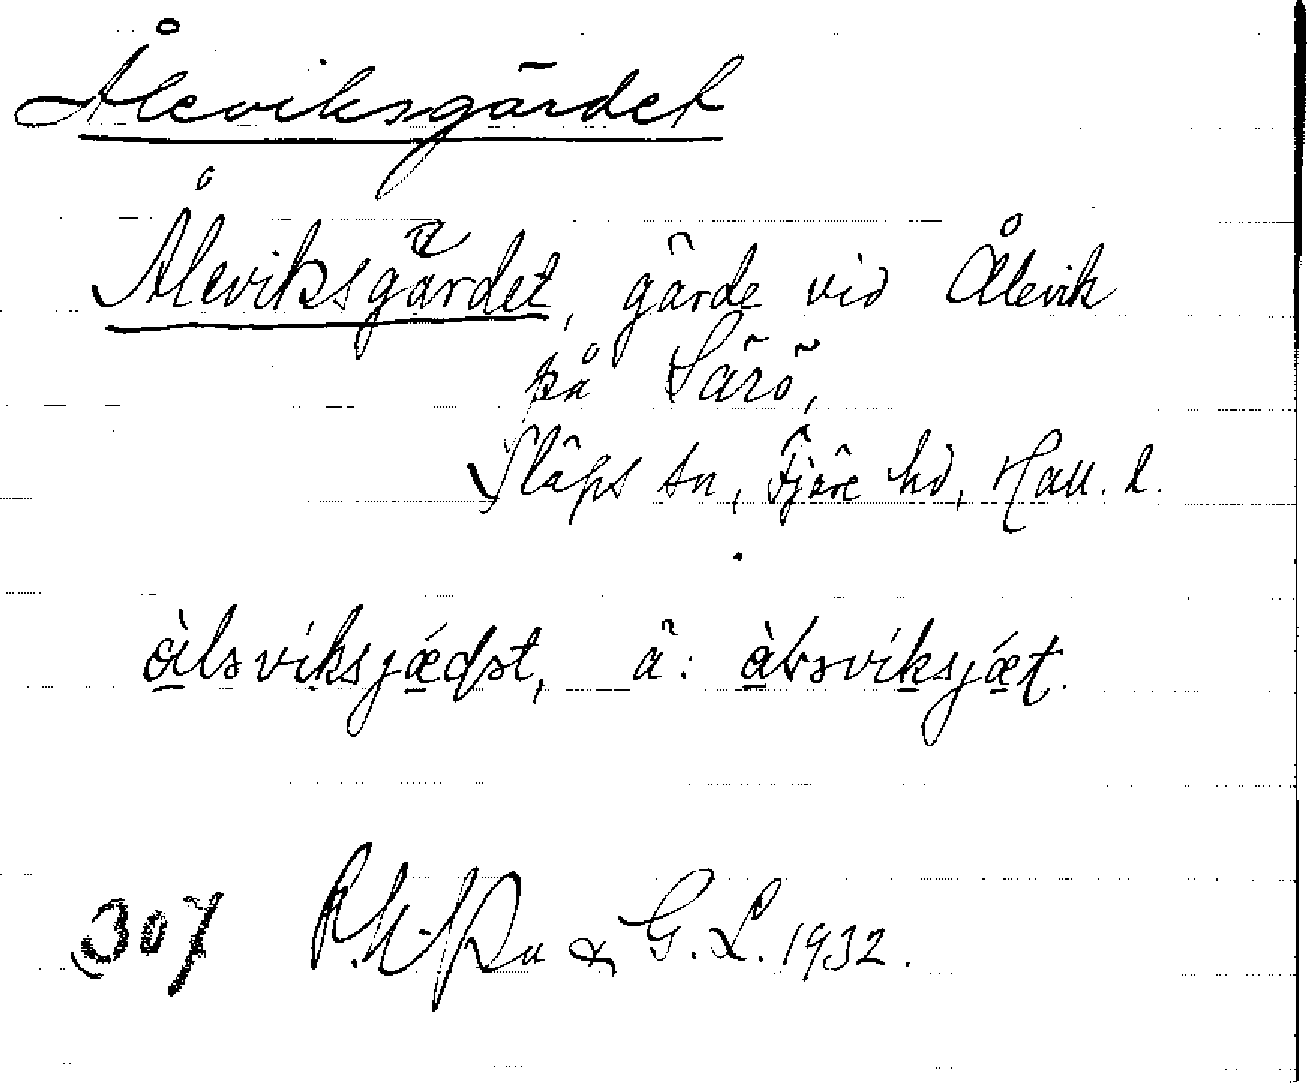 Åleviksgärdet
Åleviksgärdet, gärde vid Ålevik
på Särö,
Släps sn, Fjäre hd, Hall. l.
å̀ləvíksjǽdət, ä: å̀ləvíksjǽt.
307 & G. L. 1932.